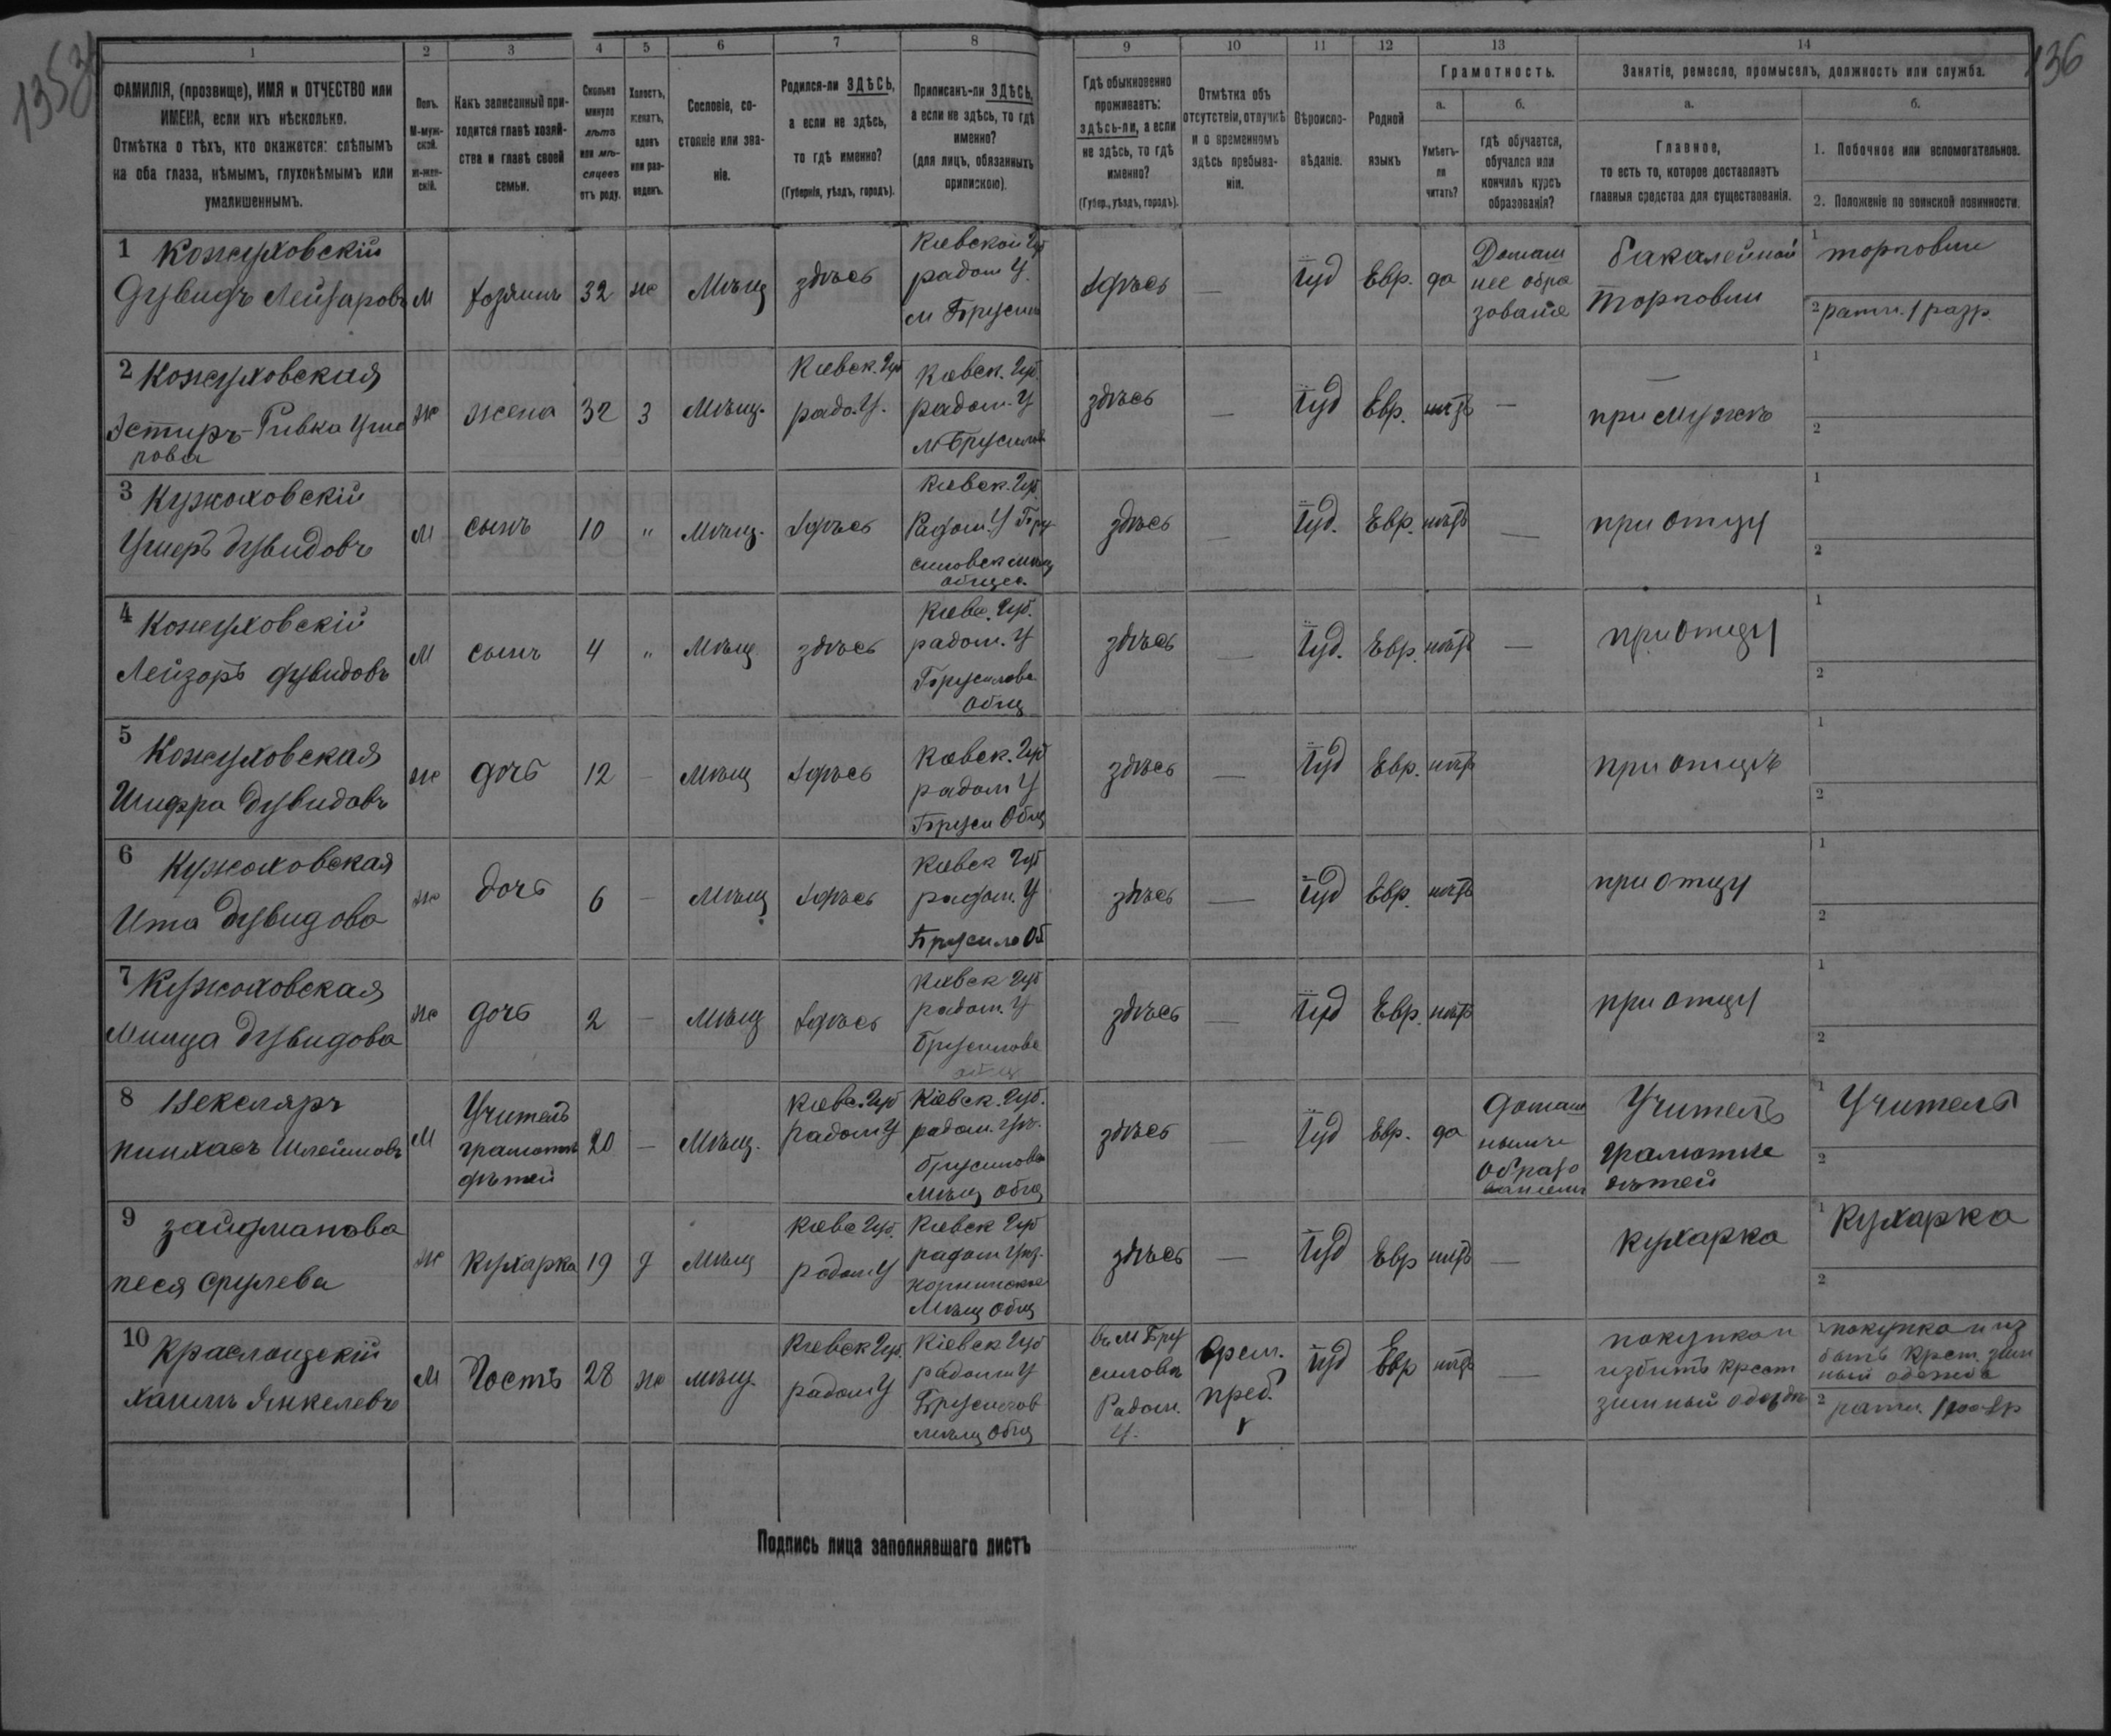 135
136
1
2
3
4
5
6
7
8
9
10
11
12
13
14
ФАМИЛІЯ, (прозвище), ИМЯ и ОТЧЕСТВО или
ИМЕНА, если ихъ нѣсколько.
Отмѣтка о тѣхъ, кто окажется: слѣпымъ
на оба глаза, нѣмымъ, глухонѣмымъ или
умалишеннымъ.
Полъ.
М-муж-
ской.
ж-жен-
скій.
Какъ записанный при-
ходится главѣ хозяй-
ства и главѣ своей
семьи.
Сколько
минуло
лѣтъ
или мѣ-
сяцевъ
отъ роду.
Холостъ,
женатъ,
вдовъ
или раз-
веденъ.
Сословіе, со-
стояніе или зва-
ніе.
Родился-ли ЗДѢСЬ,
а если не здѣсь,
то гдѣ именно?
(Губернія, уѣздъ, городъ).
Приписанъ-ли ЗДѢСЬ,
а если не здѣсь, то гдѣ
именно?
(для лицъ, обязанныхъ
припискою).
Гдѣ обыкновенно
проживаетъ:
здѣсь-ли, а если
не здѣсь, то гдѣ
именно?
(Губер., уѣздъ, городъ).
Отмѣтка объ
отсутствіи, отлучкѣ
и о временномъ
здѣсь пребыва-
ніи.
Вѣроиспо-
вѣданіе.
Родной
языкъ
Грамотность.
а.
Умѣетъ-
ли
читать?
б.
гдѣ обучается,
обучался или
кончилъ курсъ
образованія?
Занятіе, ремесло, промыселъ, должность или служба.
а.
Главное,
то есть то, которое доставляетъ
главныя средства для существованія.
б.
1. Побочное или вспомогательное.
2. Положеніе по воинской повинности.
1 Кожуховскій
Дувидъ Лейзаровъ
М
хозяинъ
32
ж
Мѣщ
здѣсь
Кіевской Губ
радом У.
м Брусил
здѣсь
—
Іуд
Евр.
да
Домаш
нее обра
зованіе
бакалейной
торговли
1 торговли
2 ратн. 1 разр.
2 Кожуховская
Эстиръ-Ривка Уше
рова
ж
жена
32
з
Мѣщ.
Кіевск. Губ
радо. У.
Кіевск. Губ.
радом. У
м Брусилов
здѣсь
—
Іуд
Евр.
нѣтъ
—
при мужѣ
1
2
3 Кужоховскій
Ушеръ Дувидовъ
М
сынъ
10
"
Мѣщ.
здѣсь
Кіевск. Губ.
Радом. У Бру
силовск мѣщ
общес.
здѣсь
—
Іуд.
Евр.
нѣтъ
—
при отцу
1
2
4 Кожуховскій
Лейзоръ Дувидовъ
М
сынъ
4
"
Мѣщ
здѣсь
Кіевс. Губ.
радом. У
Брусиловс
общ
здѣсь
—
Іуд.
Евр.
нѣтъ
—
при отцу
1
2
5
Кожуховская
Шифра Дувидовъ
ж
дочь
12
—
Мѣщ
здѣсь
Кіевск. Губ
радом У
Бруси Общ
здѣсь
—
Іуд
Евр.
нѣтъ
при отцѣ
1
2
6
Кужоховская
Ита Дувидова
ж
дочь
6
—
Мѣщ
здѣсь
Кіевск Губ
радом. У
Брусило Об
здѣсь
—
Іуд
Евр.
нѣтъ
при отцу
1
2
7 Кужоховская
Дувидова
ж
дочь
2
—
Мѣщ
здѣсь
Кіевск Губ
радом. У
Брусиловс
общ
здѣсь
—
Іуд
Евр.
нѣтъ
при отцу
1
2
8 Вексляръ
Пинхасъ Шлеймовъ
М
Учитель
грамотѣ
дѣтей
20
—
Мѣщ.
Кіевс. Губ
радом У
Кіевск. Губ.
радом. уѣ.
брусиловс
Мѣщ общ
здѣсь
—
Іуд
Евр.
да
домаш
нымъ
образо
ваніемъ
Учитель
грамотне
дѣтей
1 Учитель
2
9 Зайдманова
Песя Срулева
ж
кухарка
19
д
Мѣщ
Кіевс Губ.
радом У
Кіевск Губ
радом уѣз.
Мѣщ общ
здѣсь
—
Іуд
Евр
нѣтъ
—
кухарка
1 Кухарка
2
10
Хаимъ Янкелевъ
М
Гость
28
ж
мѣщ.
Кіевск Губ.
радом У
Кіевск Губ
радом У
Брусилов
мѣщ Общ
въ м Бру
силовѣ
Радом.
У.
врем.
преб.
Іуд
Евр
нѣтъ
—
покупкой
крест
зимный
1 покупкой
крест. зим
ный одежда
2 ратн.
Подпись лица заполнявшаго листъ